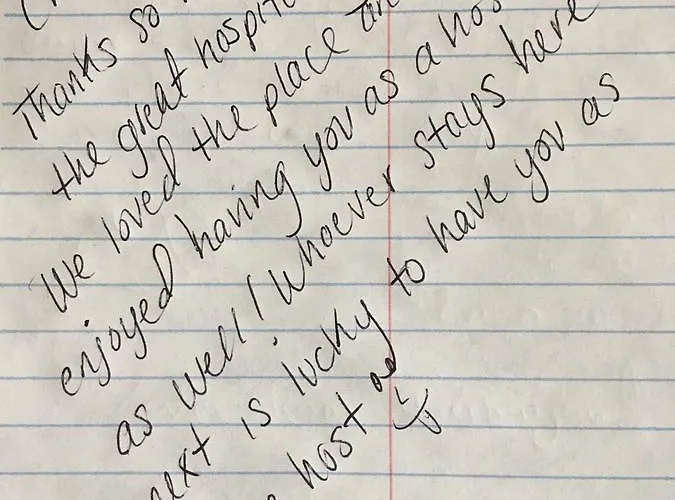 Thanks so
the great hospit
We loved the place an
enjoyed having you as a hos
as well! Whoever stays here
next is lucky to have you as
host